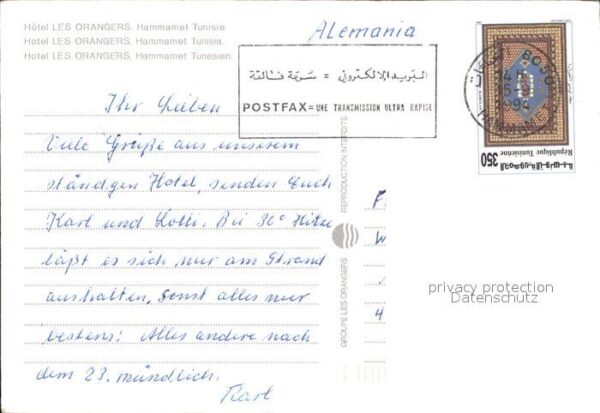 Hôtel LES ORANGERS, Hammamet Tunisie.
Hotel LES ORANGERS, Hammamet Tunisia.
Hotel LES ORANGERS, Hammamet Tunesien.
Alemania
البريد الإلكتروني = سرعة فائقة
POSTFAX = UNE TRANSMISSION ULTRA RAPIDE
350
République Tunisienne
Ihr Lieben
Viele Grüße aus unserem
ständigen Hotel, senden Euch
Karl und Lotti. Bei 30° Hitze
läßt es sich nur am Strand
aushalten, sonst alles nur
bestens! Alles andere nach
dem 23. mündlich.
Karl
REPRODUCTION INTERDITE
GROUPE LES ORANGERS
F
W
4
privacy protection
Datenschutz